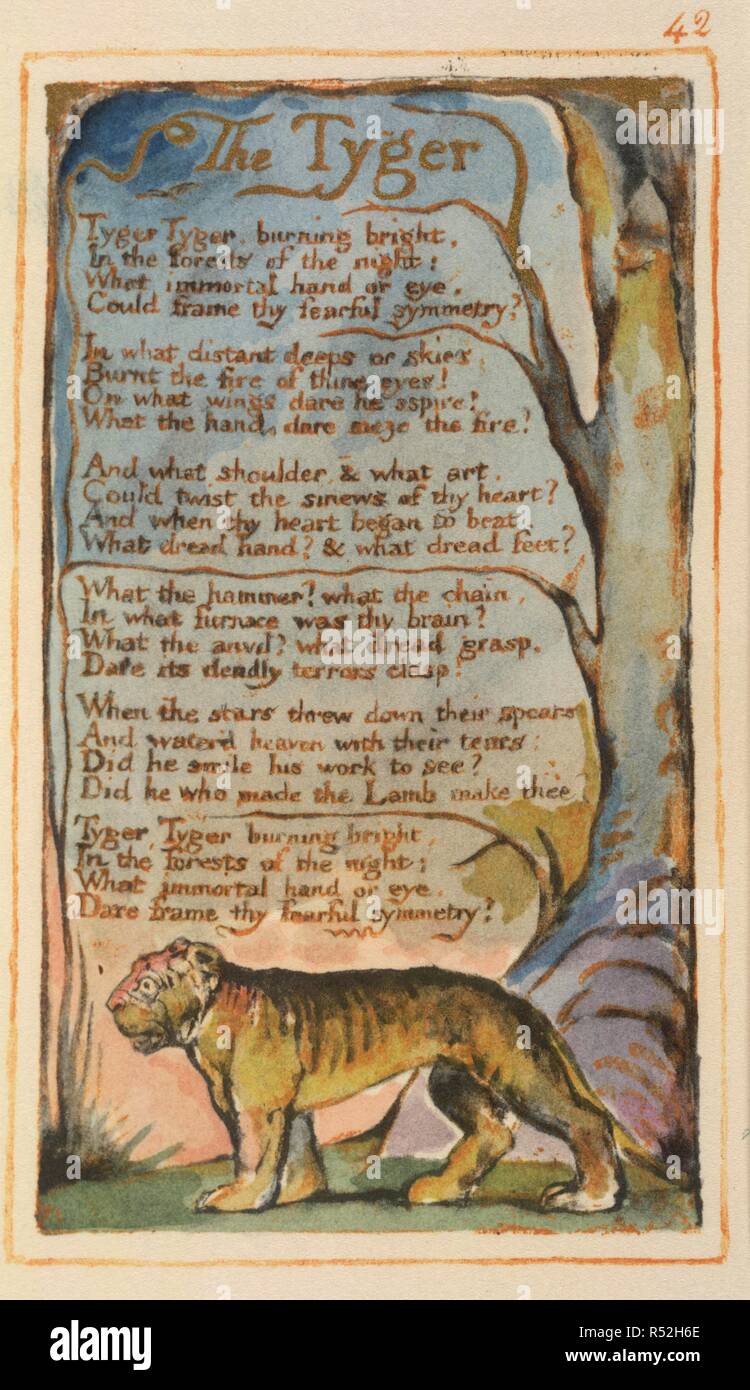 42
The Tyger
Tyger Tyger, burning bright,
In the forests of the night:
What immortal hand or eye,
Could frame thy fearful symmetry?
In what distant deeps or skies,
Burnt the fire of thine eyes!
On what wings dare he aspire!
What the hand, dare sieze the fire?
And what shoulder, & what art,
Could twist the sinews of thy heart?
And when thy heart began to beat,
What dread hand? & what dread feet?
What the hammer? what the chain,
In what furnace was thy brain?
What the anvil? what dread grasp,
Dare its deadly terrors clasp!
When the stars threw down their spears
And water'd heaven with their tears:
Did he smile his work to see?
Did he who made the Lamb make thee?
Tyger, Tyger burning bright,
In the forests of the night;
What immortal hand or eye,
Dare frame thy fearful symmetry?
alamy
alamy
a
alamy
Image ID: R52H6E
www.alamy.com